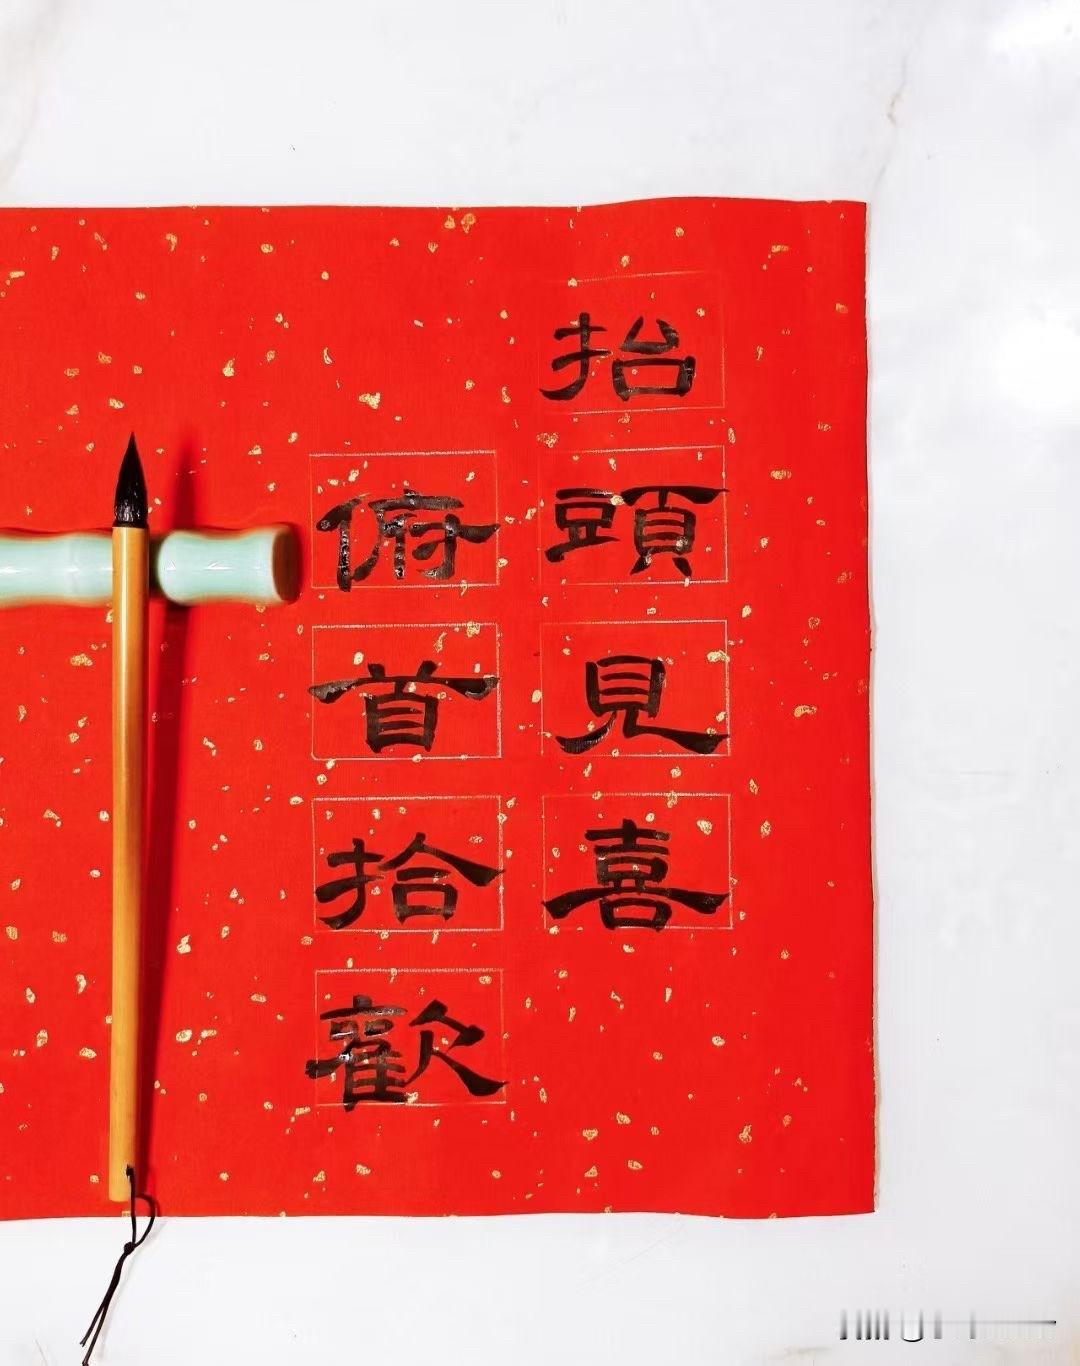 抬頭見喜
俯首拾歡